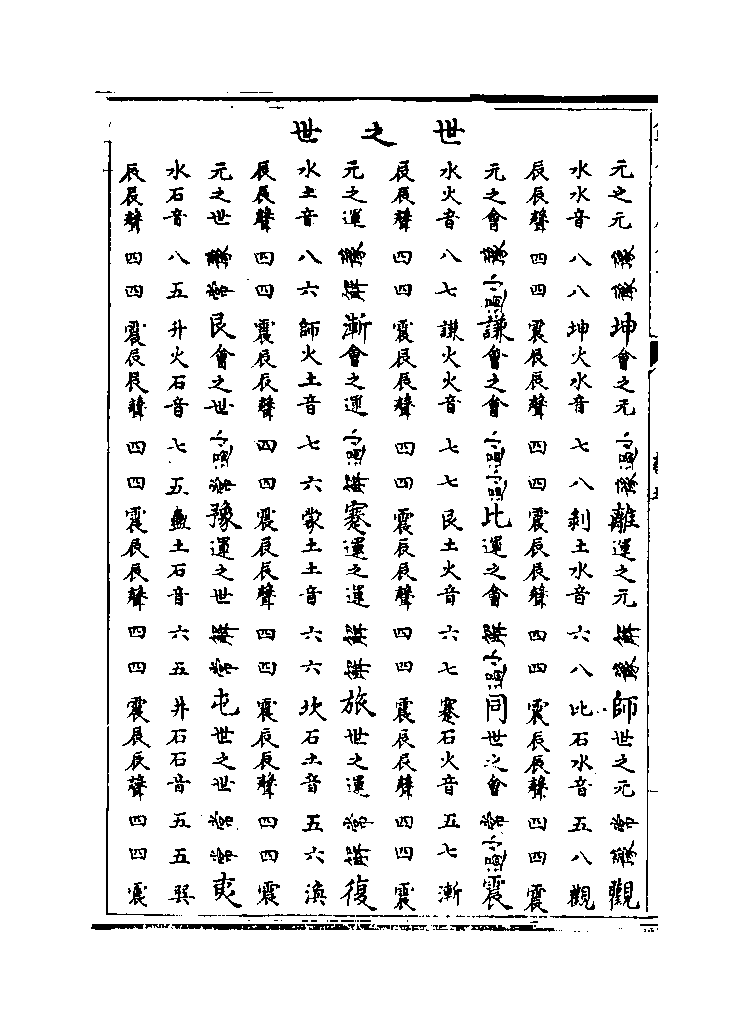 世之世
元之元豫豫坤會之元小過豫離運之元解豫師世之元常豫觀
水水音八八坤火水音七八剝土水音六八比石水音五八觀
辰辰聲四四震辰辰聲四四震辰辰聲四四震辰辰聲四四震
元之會豫小過謙會之會小過小過比運之會解小過同世之會常小過震
水火音八七謙火火音七七艮土火音六七蹇石火音五七漸
辰辰聲四四震辰辰聲四四震辰辰聲四四震辰辰聲四四震
元之運豫解漸會之運小過解蹇運之運解解旅世之運常解復
水土音八六師火土音七六蒙土土音六六坎石土音五六渙
辰辰聲四四震辰辰聲四四震辰辰聲四四震辰辰聲四四震
元之世豫常艮會之世小過常豫運之世解常屯世之世常常夷
水石音八五升火石音七五蠱土石音六五井石石音五五巽
辰辰聲四四震辰辰聲四四震辰辰聲四四震辰辰聲四四震